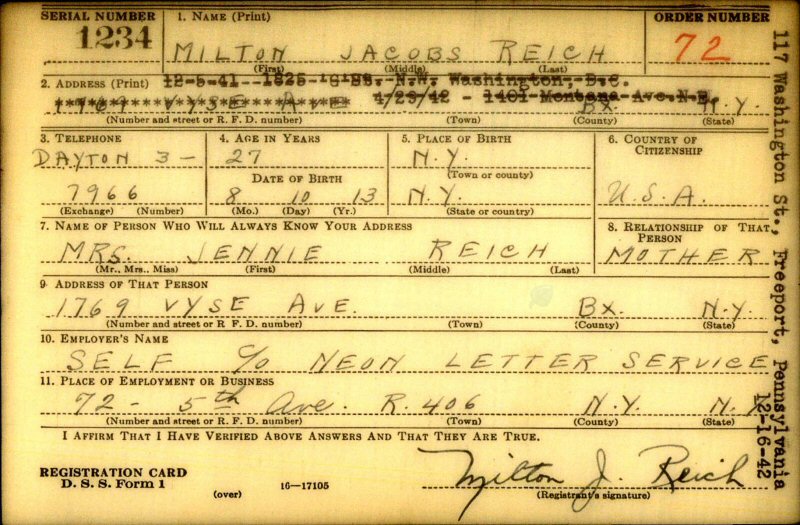 SERIAL NUMBER 1. NAME (Print) ORDER NUMBER
1234 MILTON JACOBS REICH 72
(First) (Middle) (Last)
2. ADDRESS (Print) 12-5-41--1825 St. N.W. Washington, D.C.
1769 VYSE AVE 4/29/42 - 1401 Montana Ave. N.E. BX. N.Y.
(Number and street or R. F. D. number) (Town) (County) (State)
3. TELEPHONE 4. AGE IN YEARS 5. PLACE OF BIRTH 6. COUNTRY OF CITIZENSHIP
DAYTON 3- 27 N.Y.
DATE OF BIRTH (Town or county)
7966 8 10 13 N.Y. U.S.A.
(Exchange) (Number) (Mo.) (Day) (Yr.) (State or country)
7. NAME OF PERSON WHO WILL ALWAYS KNOW YOUR ADDRESS 8. RELATIONSHIP OF THAT PERSON
MRS. JENNIE REICH MOTHER
(Mr., Mrs., Miss) (First) (Middle) (Last)
9. ADDRESS OF THAT PERSON
1769 VYSE AVE. BX. N.Y.
(Number and street or R. F. D. number) (Town) (County) (State)
10. EMPLOYER'S NAME
SELF C/O NEON LETTER SERVICE
11. PLACE OF EMPLOYMENT OR BUSINESS
72- 5th Ave. R. 406 N.Y. N.Y.
(Number and street or R. F. D. number) (Town) (County) (State)
I AFFIRM THAT I HAVE VERIFIED ABOVE ANSWERS AND THAT THEY ARE TRUE.
REGISTRATION CARD
D. S. S. Form 1
(over) 16—17105
Milton J. Reich
(Registrant's signature)
117 Washington St., Freeport, Pennsylvania
12-16-42